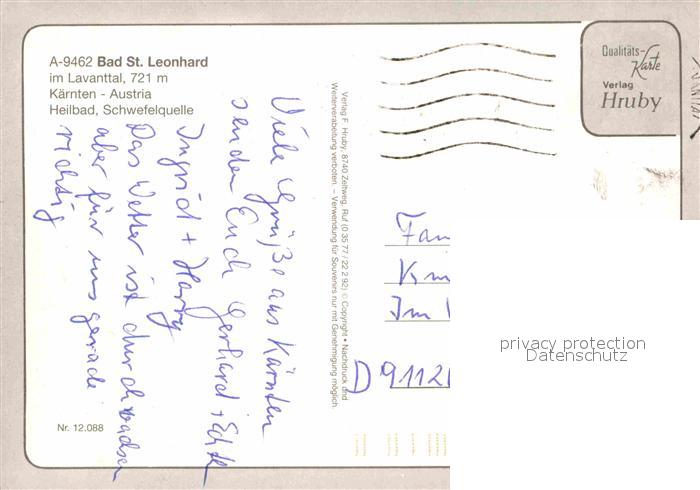 A-9462 Bad St. Leonhard
im Lavanttal, 721 m
Kärnten - Austria
Heilbad, Schwefelquelle
Viele Grüße aus Kärnten
senden Euch Gerhard +
Ingrid + Harry
Das Wetter ist durchwachsen
aber für uns gerade
richtig
Nr. 12.088
Verlag F. Hruby, 8740 Zeltweg, Ruf (0 35 77 / 22 2 92) © Copyright • Nachdruck und
Weiterverabeitung verboten. – Verwendung für Souvenirs nur mit Genehmigung möglich.
Qualitäts-
Karte
Verlag
Hruby
Fam
Im
D 9112
privacy protection
Datenschutz